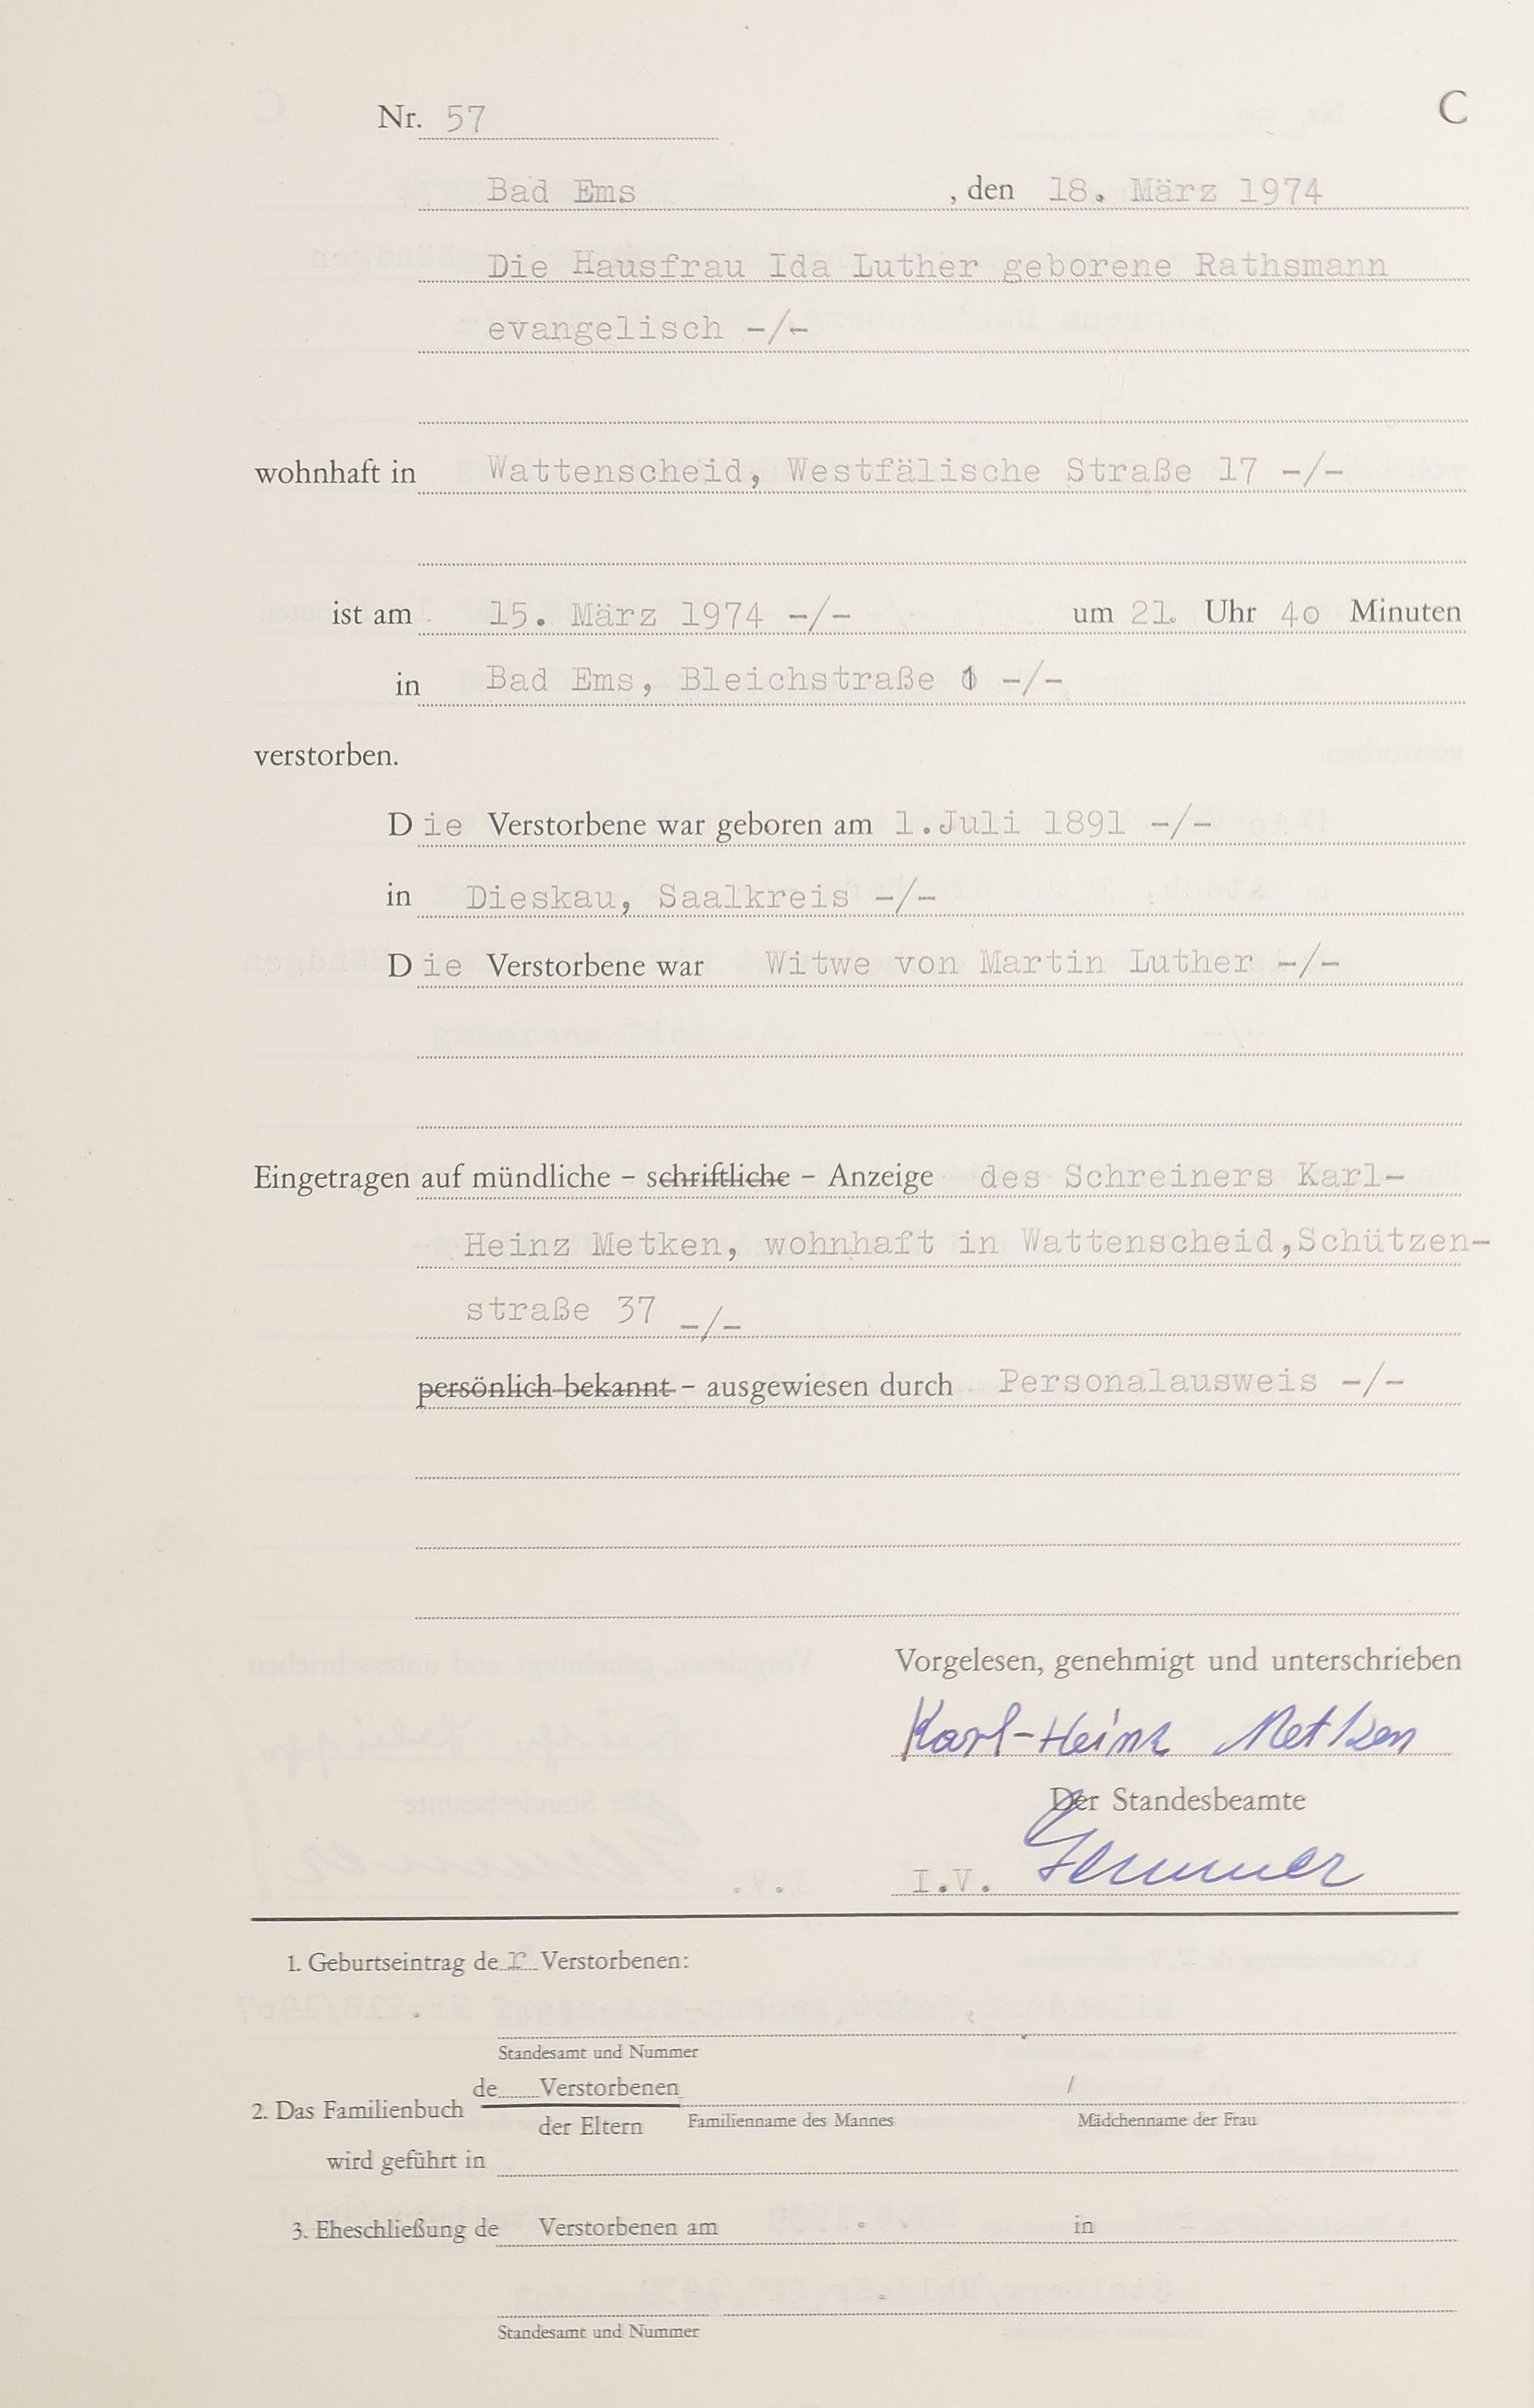 Nr. 57
C
Bad Ems , den 18. März 1974
Die Hausfrau Ida Luther geborene Rathsmann
evangelisch -/-
wohnhaft in Wattenscheid, Westfälische Straße 17 -/-
ist am 15. März 1974 -/- um 21 Uhr 40 Minuten
in Bad Ems, Bleichstraße 1 -/-
verstorben.
Die Verstorbene war geboren am 1.Juli 1891 -/-
in Dieskau, Saalkreis -/-
Die Verstorbene war Witwe von Martin Luther -/-
Eingetragen auf mündliche - schriftliche - Anzeige des Schreiners Karl-
Heinz Metken, wohnhaft in Wattenscheid,Schützen-
straße 37 -/-
persönlich bekannt - ausgewiesen durch Personalausweis -/-
Vorgelesen, genehmigt und unterschrieben
Karl-Heinz Metken
Der Standesbeamte
I.V.
1. Geburtseintrag der Verstorbenen:
Standesamt und Nummer
de Verstorbenen /
2. Das Familienbuch
der Eltern Familienname des Mannes Mädchenname der Frau
wird geführt in
3. Eheschließung de Verstorbenen am in
Standesamt und Nummer